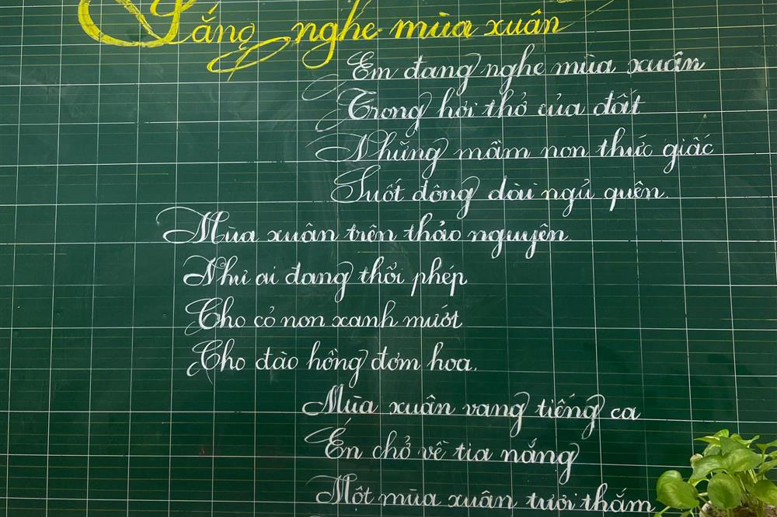 Lắng nghe mùa xuân
Em đang nghe mùa xuân
Trong hơi thở của đất
Những mầm non thức giấc
Suốt đông dài ngủ quên.
Mùa xuân trên thảo nguyên
Như ai đang thổi phép
Cho cỏ non xanh mướt
Cho đào hồng đơm hoa.
Mùa xuân vang tiếng ca
Én chở về tia nắng
Một mùa xuân tươi thắm